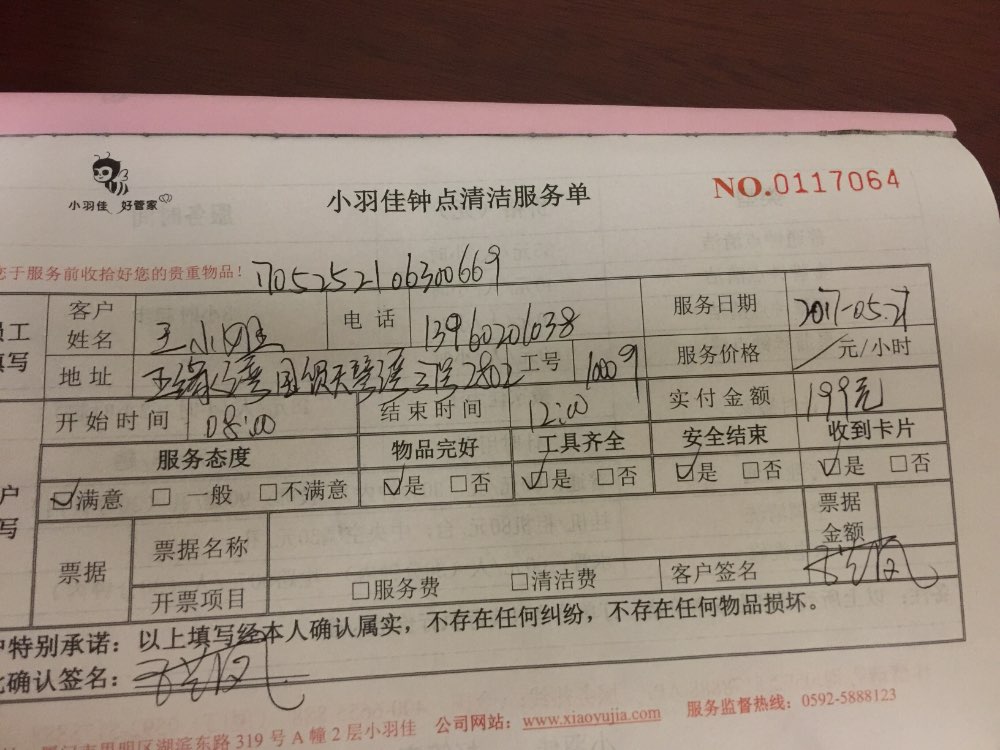 小羽佳 好管家
小羽佳钟点清洁服务单
NO.0117064
您于服务前收拾好您的贵重物品！ 1705252106300669
员工填写 客户姓名 王小姐 电话 13960201038 服务日期 2017-05.27
地址 国领天琴湾 2802 工号 10009 服务价格 / 元/小时
开始时间 08:00 结束时间 12:00 实付金额 199元
服务态度 物品完好 工具齐全 安全结束 收到卡片
☑满意 □一般 □不满意 ☑是 □否 ☑是 □否 ☑是 □否 ☑是 □否
户填写 票据 票据名称 票据金额
开票项目 □服务费 □清洁费 客户签名
户特别承诺：以上填写经本人确认属实，不存在任何纠纷，不存在任何物品损坏。
此确认签名：
厦门市思明区湖滨东路319号A幢2层小羽佳 公司网站：www.xiaoyujia.com 服务监督热线：0592-5888123